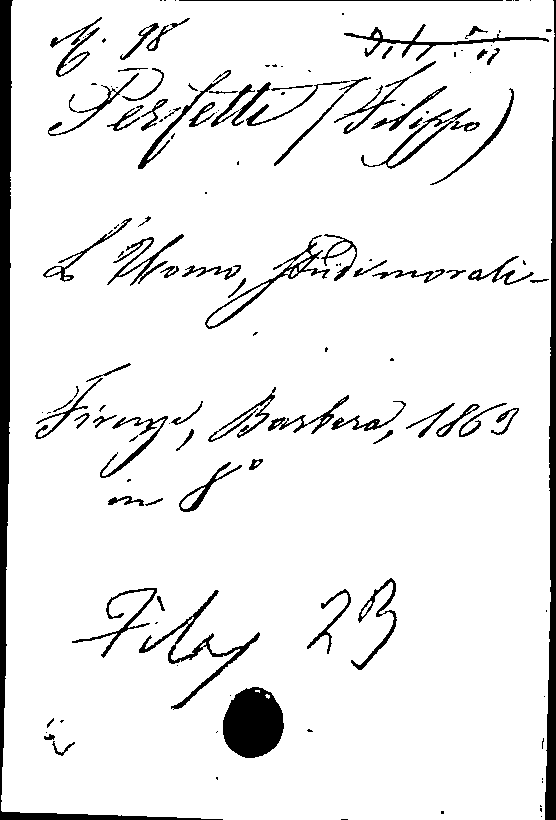 M. 98
Perfetti (Filippo)
L'Uomo, studi morali-
Firenze, Barbera, 1863
in 8°
Filos 2B